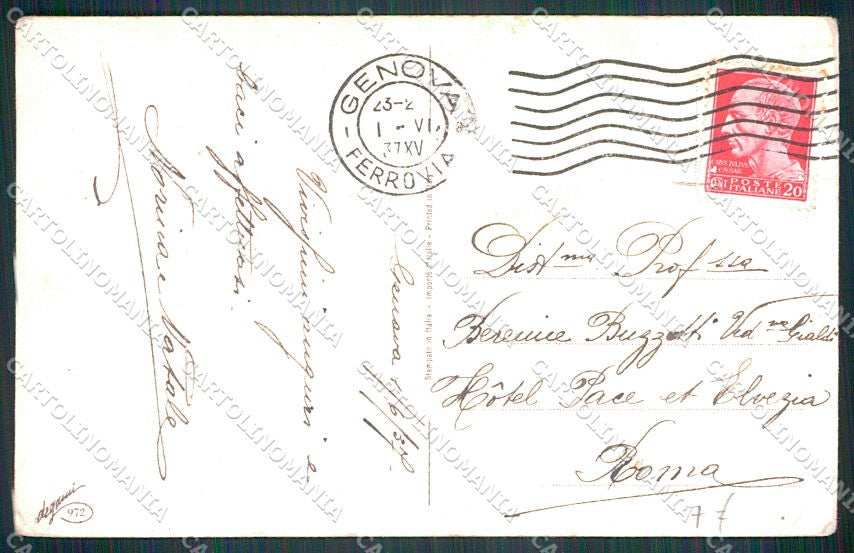 GENOVA
23-2
1-VI.
37XV
FERROVIA
CAIVS IVLIVS
CAESAR
CENT POSTE ITALIANE 20
Genova 1/6/37
Vivissimi auguri e
baci affettuosi.
Natale
Stampato in Italia - Importé d'Italie - Printed in
Dist.ma Prof.ssa
Berenice Buzzetti Ved.va Gialdi
Hôtel Pace et Elvezia
Roma
degami
972
CARTOLINOMANIA